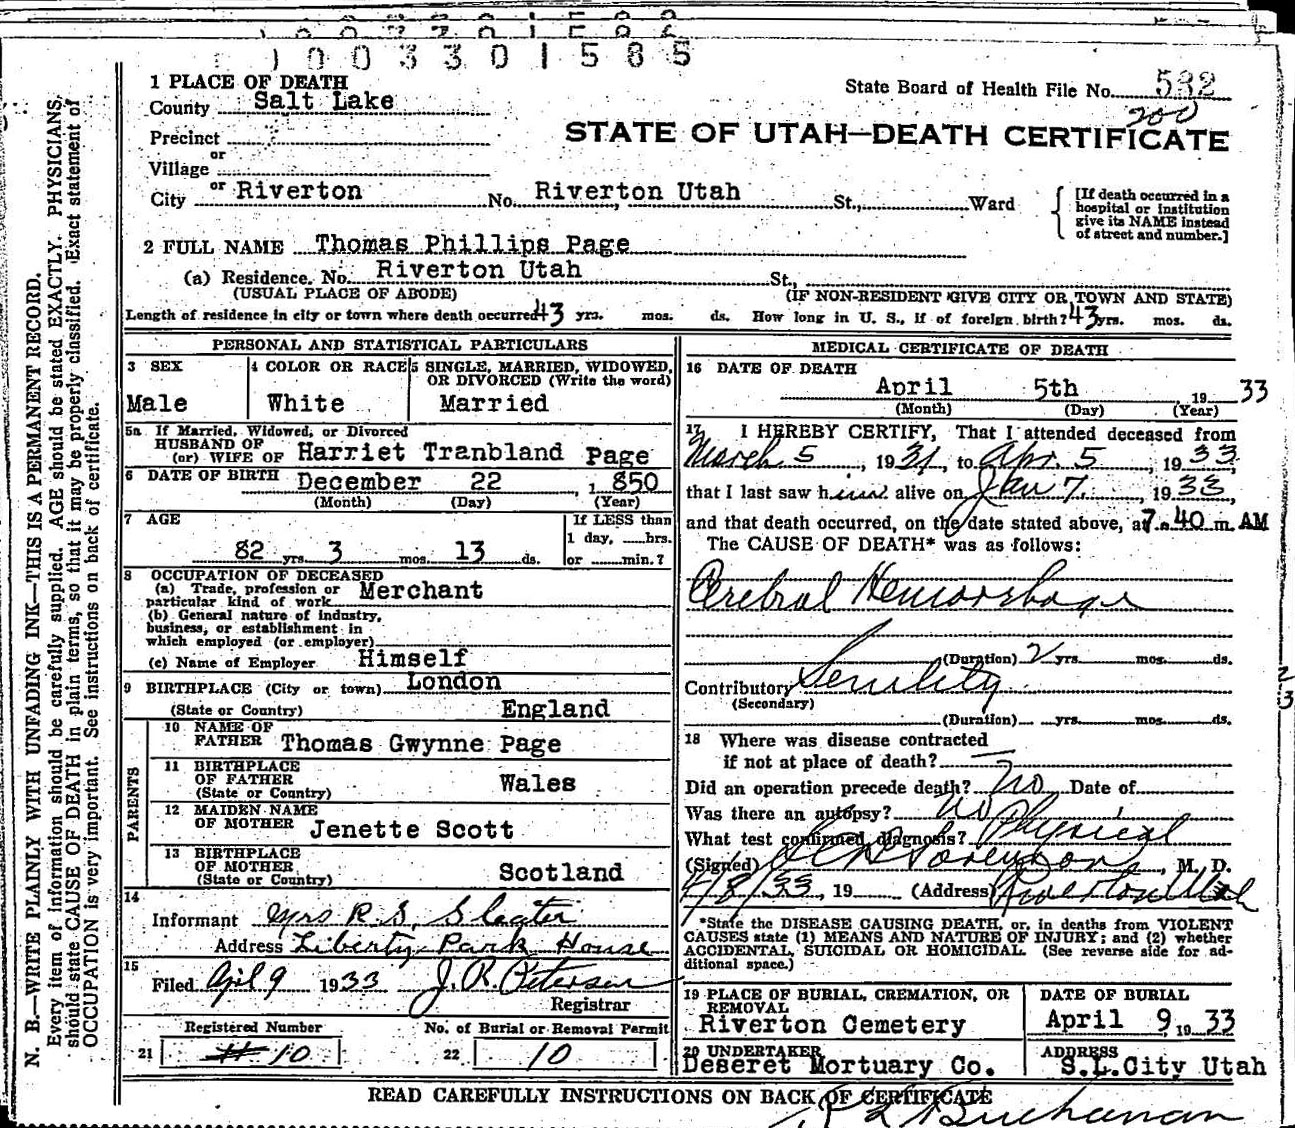 1003301585
1 PLACE OF DEATH
State Board of Health File No. 532
County Salt Lake
200
STATE OF UTAH—DEATH CERTIFICATE
Precinct
or
Village
or
City Riverton No. Riverton Utah St., Ward
[If death occurred in a hospital or institution give its NAME instead of street and number.]
2 FULL NAME Thomas Phillips Page
(a) Residence. No. Riverton Utah St.,
(USUAL PLACE OF ABODE) (IF NON-RESIDENT GIVE CITY OR TOWN AND STATE)
Length of residence in city or town where death occurred 43 yrs. mos. ds. How long in U. S., if of foreign birth? 43 yrs. mos. ds.
PERSONAL AND STATISTICAL PARTICULARS
3 SEX 4 COLOR OR RACE 5 SINGLE, MARRIED, WIDOWED,
OR DIVORCED (Write the word)
Male White Married
5a If Married, Widowed, or Divorced
HUSBAND OF
(or) WIFE OF Harriet Tranbland Page
6 DATE OF BIRTH December 22, 1850
(Month) (Day) (Year)
7 AGE If LESS than
1 day, hrs.
82 yrs. 3 mos. 13 ds. or min.?
8 OCCUPATION OF DECEASED
(a) Trade, profession or
particular kind of work Merchant
(b) General nature of industry,
business, or establishment in
which employed (or employer)
(c) Name of Employer Himself
9 BIRTHPLACE (City or town) London
(State or Country) England
PARENTS
10 NAME OF
FATHER Thomas Gwynne Page
11 BIRTHPLACE
OF FATHER
(State or Country) Wales
12 MAIDEN NAME
OF MOTHER Jenette Scott
13 BIRTHPLACE
OF MOTHER
(State or Country) Scotland
14
Informant Mrs R. S. Sleater
Address Liberty Park House
15
Filed April 9 1933 J. R. Peterson
Registrar
Registered Number No. of Burial or Removal Permit
21 #10 22 10
MEDICAL CERTIFICATE OF DEATH
16 DATE OF DEATH
April 5th 1933
(Month) (Day) (Year)
17 I HEREBY CERTIFY, That I attended deceased from
March 5, 1931, to Apr. 5, 1933,
that I last saw him alive on Jan 7, 1933,
and that death occurred, on the date stated above, at 7.40 m. AM
The CAUSE OF DEATH* was as follows:
Cerebral Hemorrhage
(Duration) 2 yrs. mos. ds.
Contributory Senility
(Secondary)
(Duration) yrs. mos. ds.
18 Where was disease contracted
if not at place of death?
Did an operation precede death? No Date of
Was there an autopsy? no
What test confirmed diagnosis? Physical
(Signed) Sorenson, M. D.
4/8/33, 19 (Address) Riverton Utah
*State the DISEASE CAUSING DEATH, or, in deaths from VIOLENT
CAUSES state (1) MEANS AND NATURE OF INJURY; and (2) whether
ACCIDENTAL, SUICIDAL OR HOMICIDAL. (See reverse side for ad-
ditional space.)
19 PLACE OF BURIAL, CREMATION, OR
REMOVAL
Riverton Cemetery
DATE OF BURIAL
April 9, 1933
20 UNDERTAKER
Deseret Mortuary Co.
ADDRESS
S.L.City Utah
READ CAREFULLY INSTRUCTIONS ON BACK OF CERTIFICATE
Buchanan
N. B.—WRITE PLAINLY WITH UNFADING INK—THIS IS A PERMANENT RECORD.
Every item of information should be carefully supplied. AGE should be stated EXACTLY. PHYSICIANS
should state CAUSE OF DEATH in plain terms, so that it may be properly classified. Exact statement of
OCCUPATION is very important. See instructions on back of certificate.